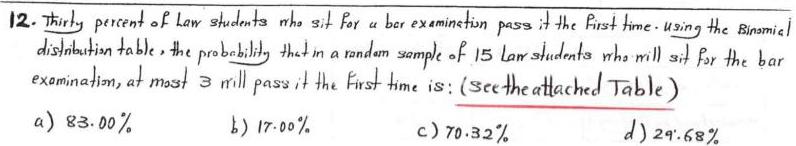 12. Thirty percent of Law students who sit for a bar examination pass it the first time. using the Binomial
distribution table, the probability that in a random sample of 15 Law students who will sit for the bar
examination, at most 3 will pass it the first time is: (see the attached Table)
a) 83.00% b) 17.00% c) 70.32% d) 29.68%